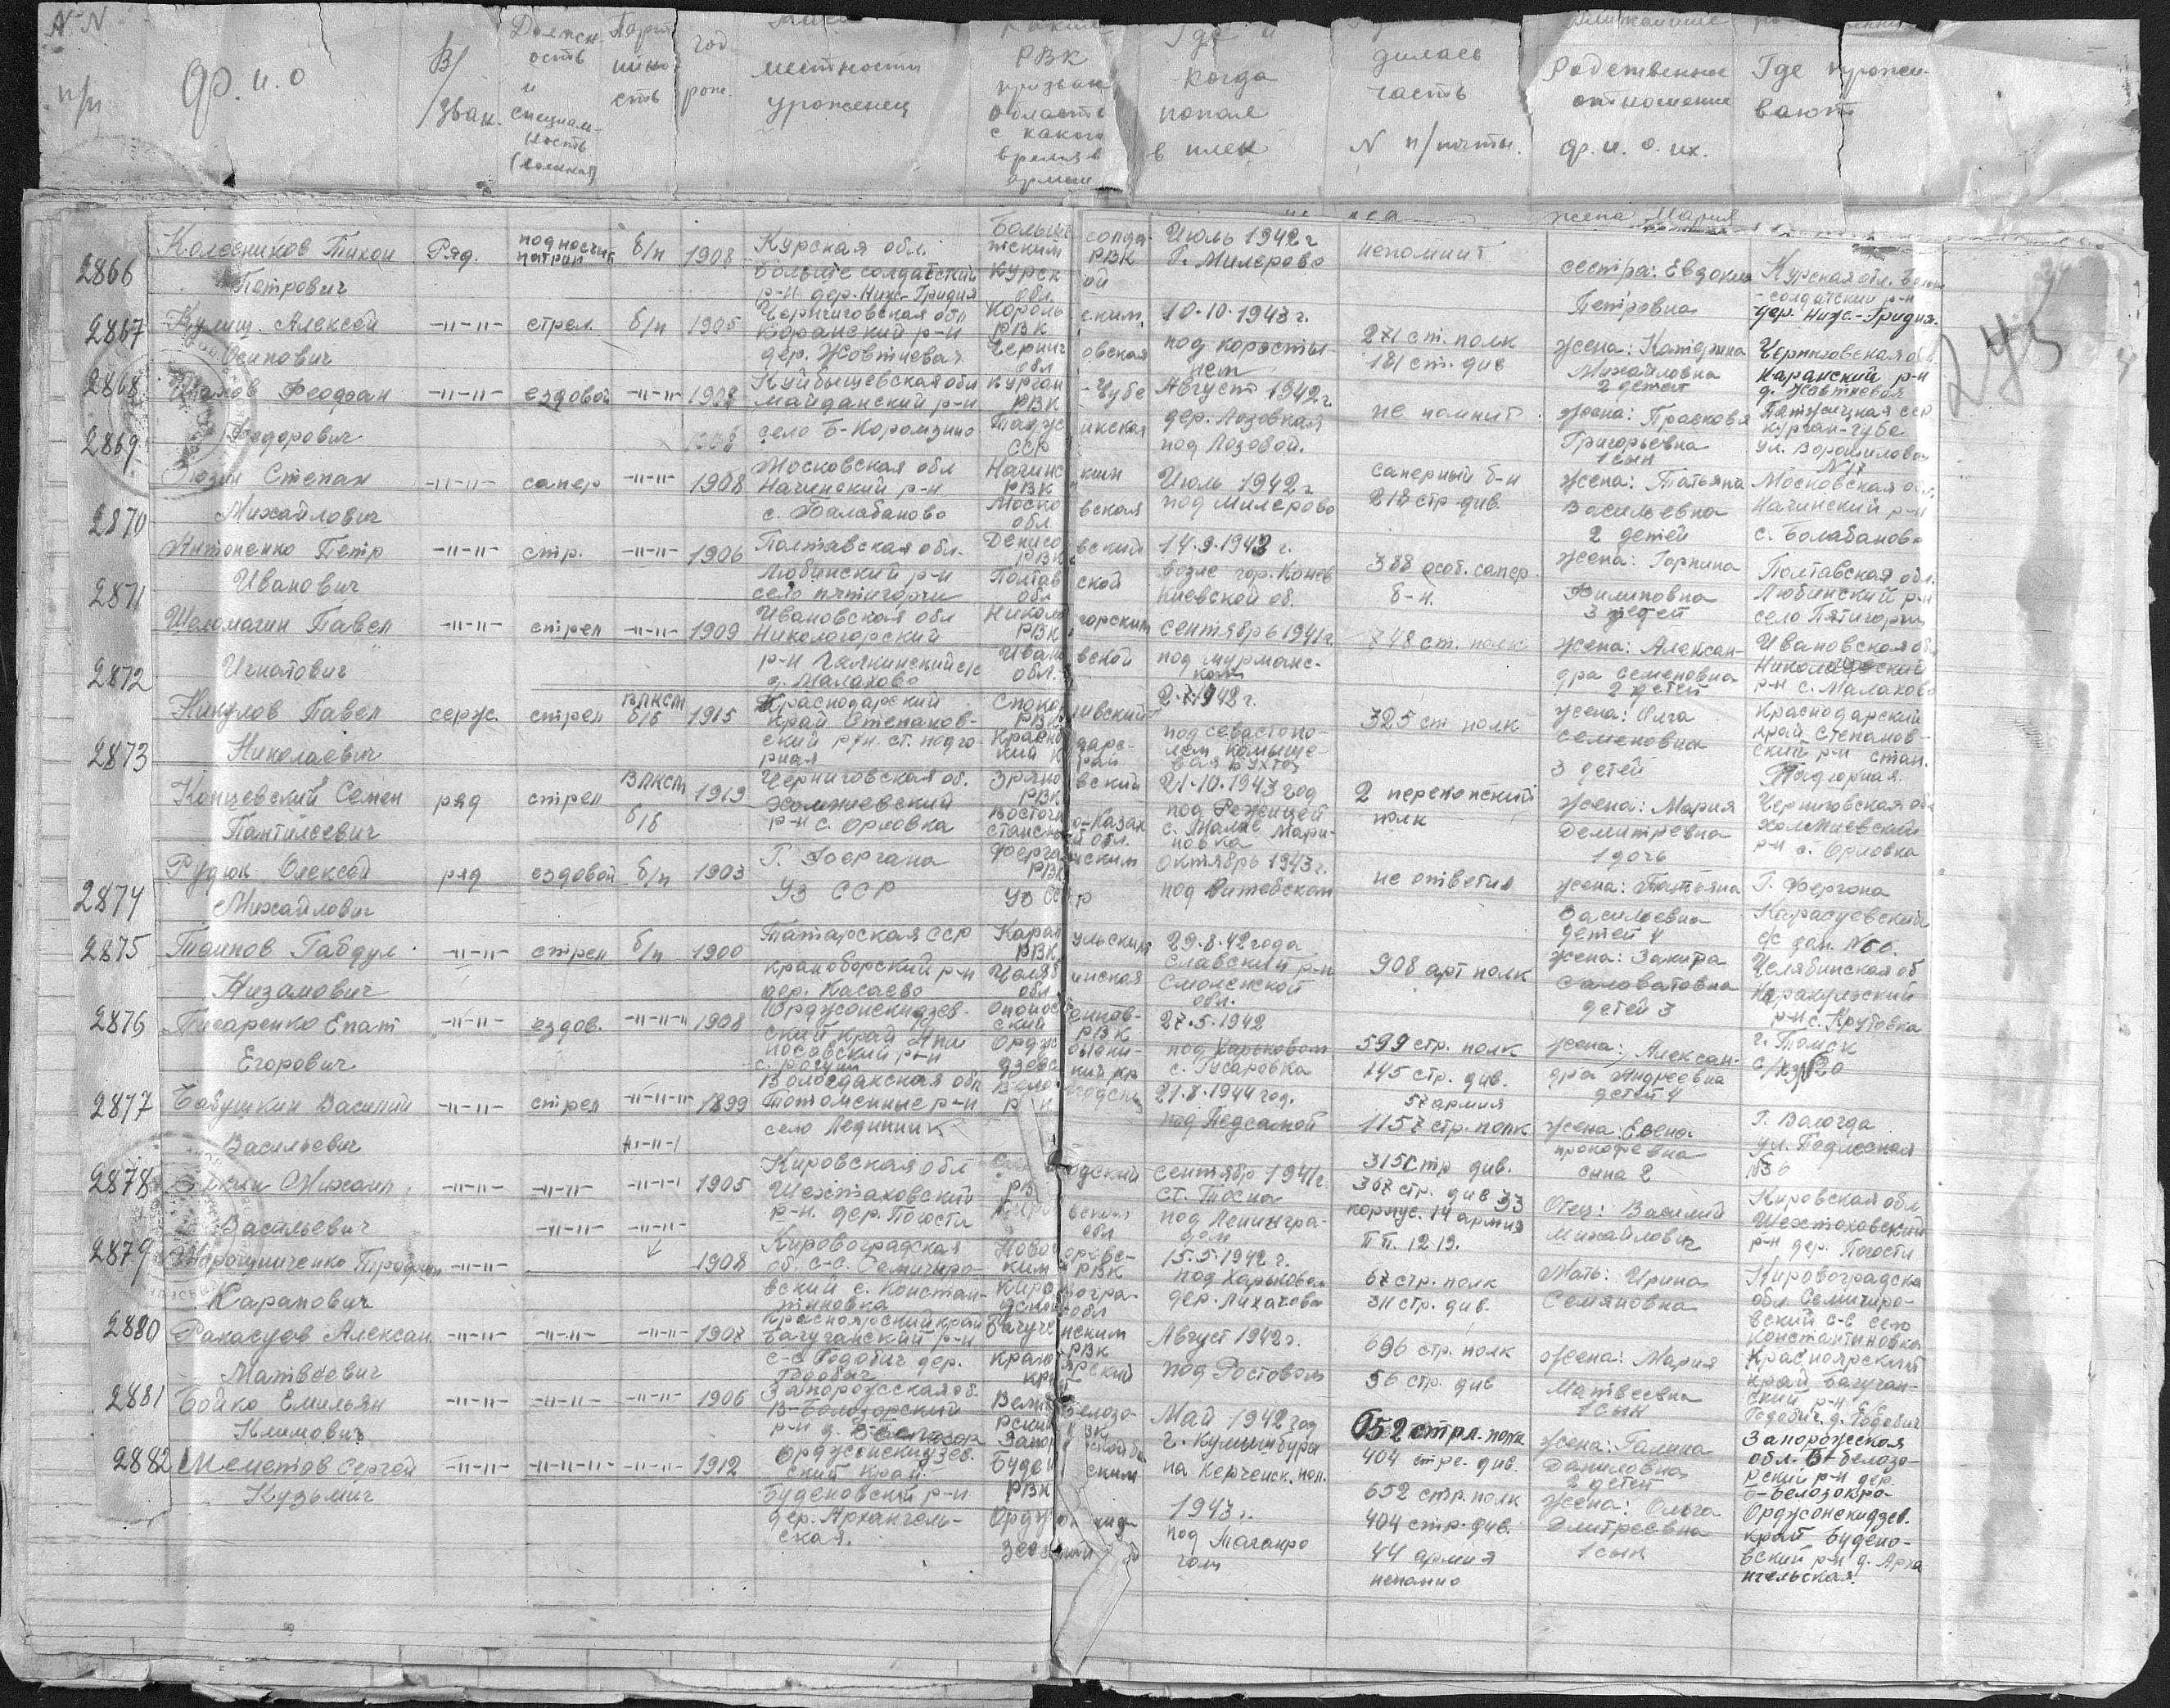 N N
п/п
ф. и. о
В/
зван.
Должн
ость
и
специал-
ность
Парт
ийно
сть
год
рож.
местности
уроженец
РВК
призван
область
с какого
время в
армии
Где и
когда
попал
в плен
дилась
часть
N п/почты.
Родственные
отношение
ф. и. о. их.
Где прожи-
вают
жена Мария
2866
Колесников Тихон
Петрович
Ряд.
подносчик
патрон
б/п
1908
Курская обл.
больше солдатский
р-н дер. Ниж-Гридия
Больше солдат-
тский РВК
Курск ой
обл.
Июль 1942 г
Г. Милерово
непомнит
сестра: Евдокия
Петровна
Курская обл. Больш
-солдатский р-н
дер. Ниж-Гридия.
2867
Кулиш Алексей
Осипович
-"-"-
стрел.
б/п
1905
Черниговская обл
Коранский р-н
дер. Жовтневая
Король ским
РВК
Черниг овская
обл
10.10.1943 г.
под коросты
нем
271 ст. полк
181 ст. див
жена: Катерина
Михайловна
2 детей
Черниговская обл.
Каранский р-н
д. Жовтневая
2868
Феофан
Федорович
-"-"-
ездовой
-"-"-
1908
Куйбышевская обл
майданский р-н
село Б-Коромзино
Курган-Чубе
РВК
Таджикская
ССР
Август 1942 г
дер. Лозовкая
под Лозовой.
не помнит
жена: Прасковя
Григорьевна
1 сын
Курган-губе
ул. Ворошилова
N 17
2869
Зюзин Степан
Михайлович
-"-"-
сапер
-"-"-
1908
Московская обл
Начинский р-н
с. Балабаново
Начинс кин
РВК
Моско вская
обл
Июль 1942 г
под Милерово
саперный б-н
218 стр. див.
жена: Татьяна
Васильевна
2 детей
Московская обл.
Начинский р-н
с. Болабаново
2870
Антоненко Петр
Иванович
-"-"-
стр.
-"-"-
1906
Полтавская обл.
Любинский р-н
село пятигорчи
Денисо вский
РВК
Полтав ской
обл
14.9.1943 г.
возле гор. Конев
киевской об.
388 особ. сапер
б-н.
жена: Горпина
Филиповна
3 детей
Полтавская обл.
Любинский р-н
село Пятигорци
2871
Шаломагин Павел
Игнатович
-"-"-
стрел
-"-"-
1909
Ивановская обл
Никологорский
р-н Галкинский с/с
д. Малахово
Николо горским
РВК
Ивано вской
обл.
сентябрь 1941 г.
под мурманс-
ком
748 ст. полк
жена: Алексан-
дра семеновна
2 детей
Ивановская обл
р-н с. Малахово
2872
Никулов Павел
Николаевич
серж.
стрел
ВЛКСМ
б/б
1915
Краснодарский
край Степанов-
ский р/н. ст. подго
рная
Споко йнивский
РВК
Красно дарс-
кий край
2.7.1942 г.
под севастопо-
лем камыше-
вая бухта
325 ст полк
жена: Олга
семеновна
3 детей
Краснодарский
край Степанов-
ский р-н стан.
Падгорная.
2873
Концевский Семен
Пантилеевич
ряд
стрел
ВЛКСМ
б/б
1919
Черниговская об.
Холмиевский
р-н с. Орловка
Зряно вский
РВК
Восточно-Казах
станской обл.
21.10.1943 год
под Режицей
с. Малые Мари-
новка
2 перекопский
полк
жена: Мария
Демитревна
1 дочь
Черниговская обл
Холмиевский
р-н с. Орловка
2874
Рудюк Олексей
Михайлович
ряд
ездовой
б/п
1903
Г. Фергана
Уз ССР
Ферга нским
РВК
Уз ССР
октябрь 1943 г.
под Витебском
не ответил
жена: Татьяна
Васильевна
детей 4
Г. Фергана
Карасуевский
с/с
2875
Таипов Габдул
Низамович
-"-"-
стрел
б/п
1900
Татарская ССР
краноборский р-н
дер. Касаево
Карак ульским
РВК
Челяб инская
обл
29.8.42 года
Славский р-н
Смоленской
обл.
908 арт полк
жена: Закира
Саловатовна
детей 3
Челябинская об
Каракульский
р-н с. Крутовка
2876
Писаренко Епат
Егорович
-"-"-
ездов.
-"-"-
1908
Орджонекидзев-
ский край Апи
носовский р-н
РВК
27.5.1942
под Харьковом
с. Гусаровка
599 стр. полк
145 стр. див.
57 армия
жена: Алексан-
дра Андреевна
детей 4
г. Томск
2877
Бабушкин Василий
Васильевич
-"-"-
стрел
-"-"-"
1899
Вологдакская обл
Тотоменние р-н
село Лединик
21.8.1944 год.
под Педсамой
1157 стр. полк
315 стр див.
жена: Евген.
прокофевна
сина 2
Г. Валогда
ул. Подлесная
№36
2878
Михаил
Васильевич
-"-"-
-"-"-
-"-"-
1905
Кировская обл
Шехтаховский
р-н. дер. Погости
сентябр 1941 г.
ст. Тосна
под Ленингра-
дем
367 стр. див 33
корпус. 14 армия
П П. 12 19.
Отец: Василий
Михайлович
Кировская обл
Шехтоховский
р-н дер. Погости
2879
Мирошниченко Трофим
Карапович
-"-"-
1908
Кировоградская
об. с-с. Семичиро-
вский с. Констан-
тиновка
РВК
15.5.1942 г.
под Харьковом
дер. Лихачова
67 стр. полк
311 стр. див.
Мать: Ирина
Семяновна
Кировоградска
обл Семичиро-
вский с-в село
Константиновка
2880
Ракасуев Алексан
Матвеевич
-"-"-
-"-"-
-"-"-
1907
Красноярский край
Багучанский р-н
с-с Годобич дер.
Годобич
Багуче нским
РВК
Красноярский
край
Август 1942 г.
под Ростовом
696 стр. полк
56 стр. див
жена: Мария
Матвеевна
1 сын
Красноярский
край Багучан-
ский р-н с-с
Годобич д. Годобич
2881
Бойко Емильян
Климович
-"-"-
-"-"-
-"-"-
1906
Запорожсская об.
В-Белозорский
р-н д.
Май 1942 год
на Керченск. пол.
652 стрл. полк
404 стре. див.
жена: Галина
Даниловна
2 детей
Запорожсская
обл. Б-белозо-
рский р-н дер
Б-Белозокра-
2882
Меметов Сергей
Кузьмич
-"-"-
-"-"-"-
-"-"-
1912
Орджонскидзев.
ский край.
Буденовский р-н
дер. Архангель-
ская.
Буден ским
РВК
1943 г.
под Таганро
гом
652 стр. полк
404 стр. див.
44 армия
непомно
жена: Ольга
Дмитреевна
1 сын
Орджонскидзев.
край Будено-
вский р-н д. Арха
нгельская.
245